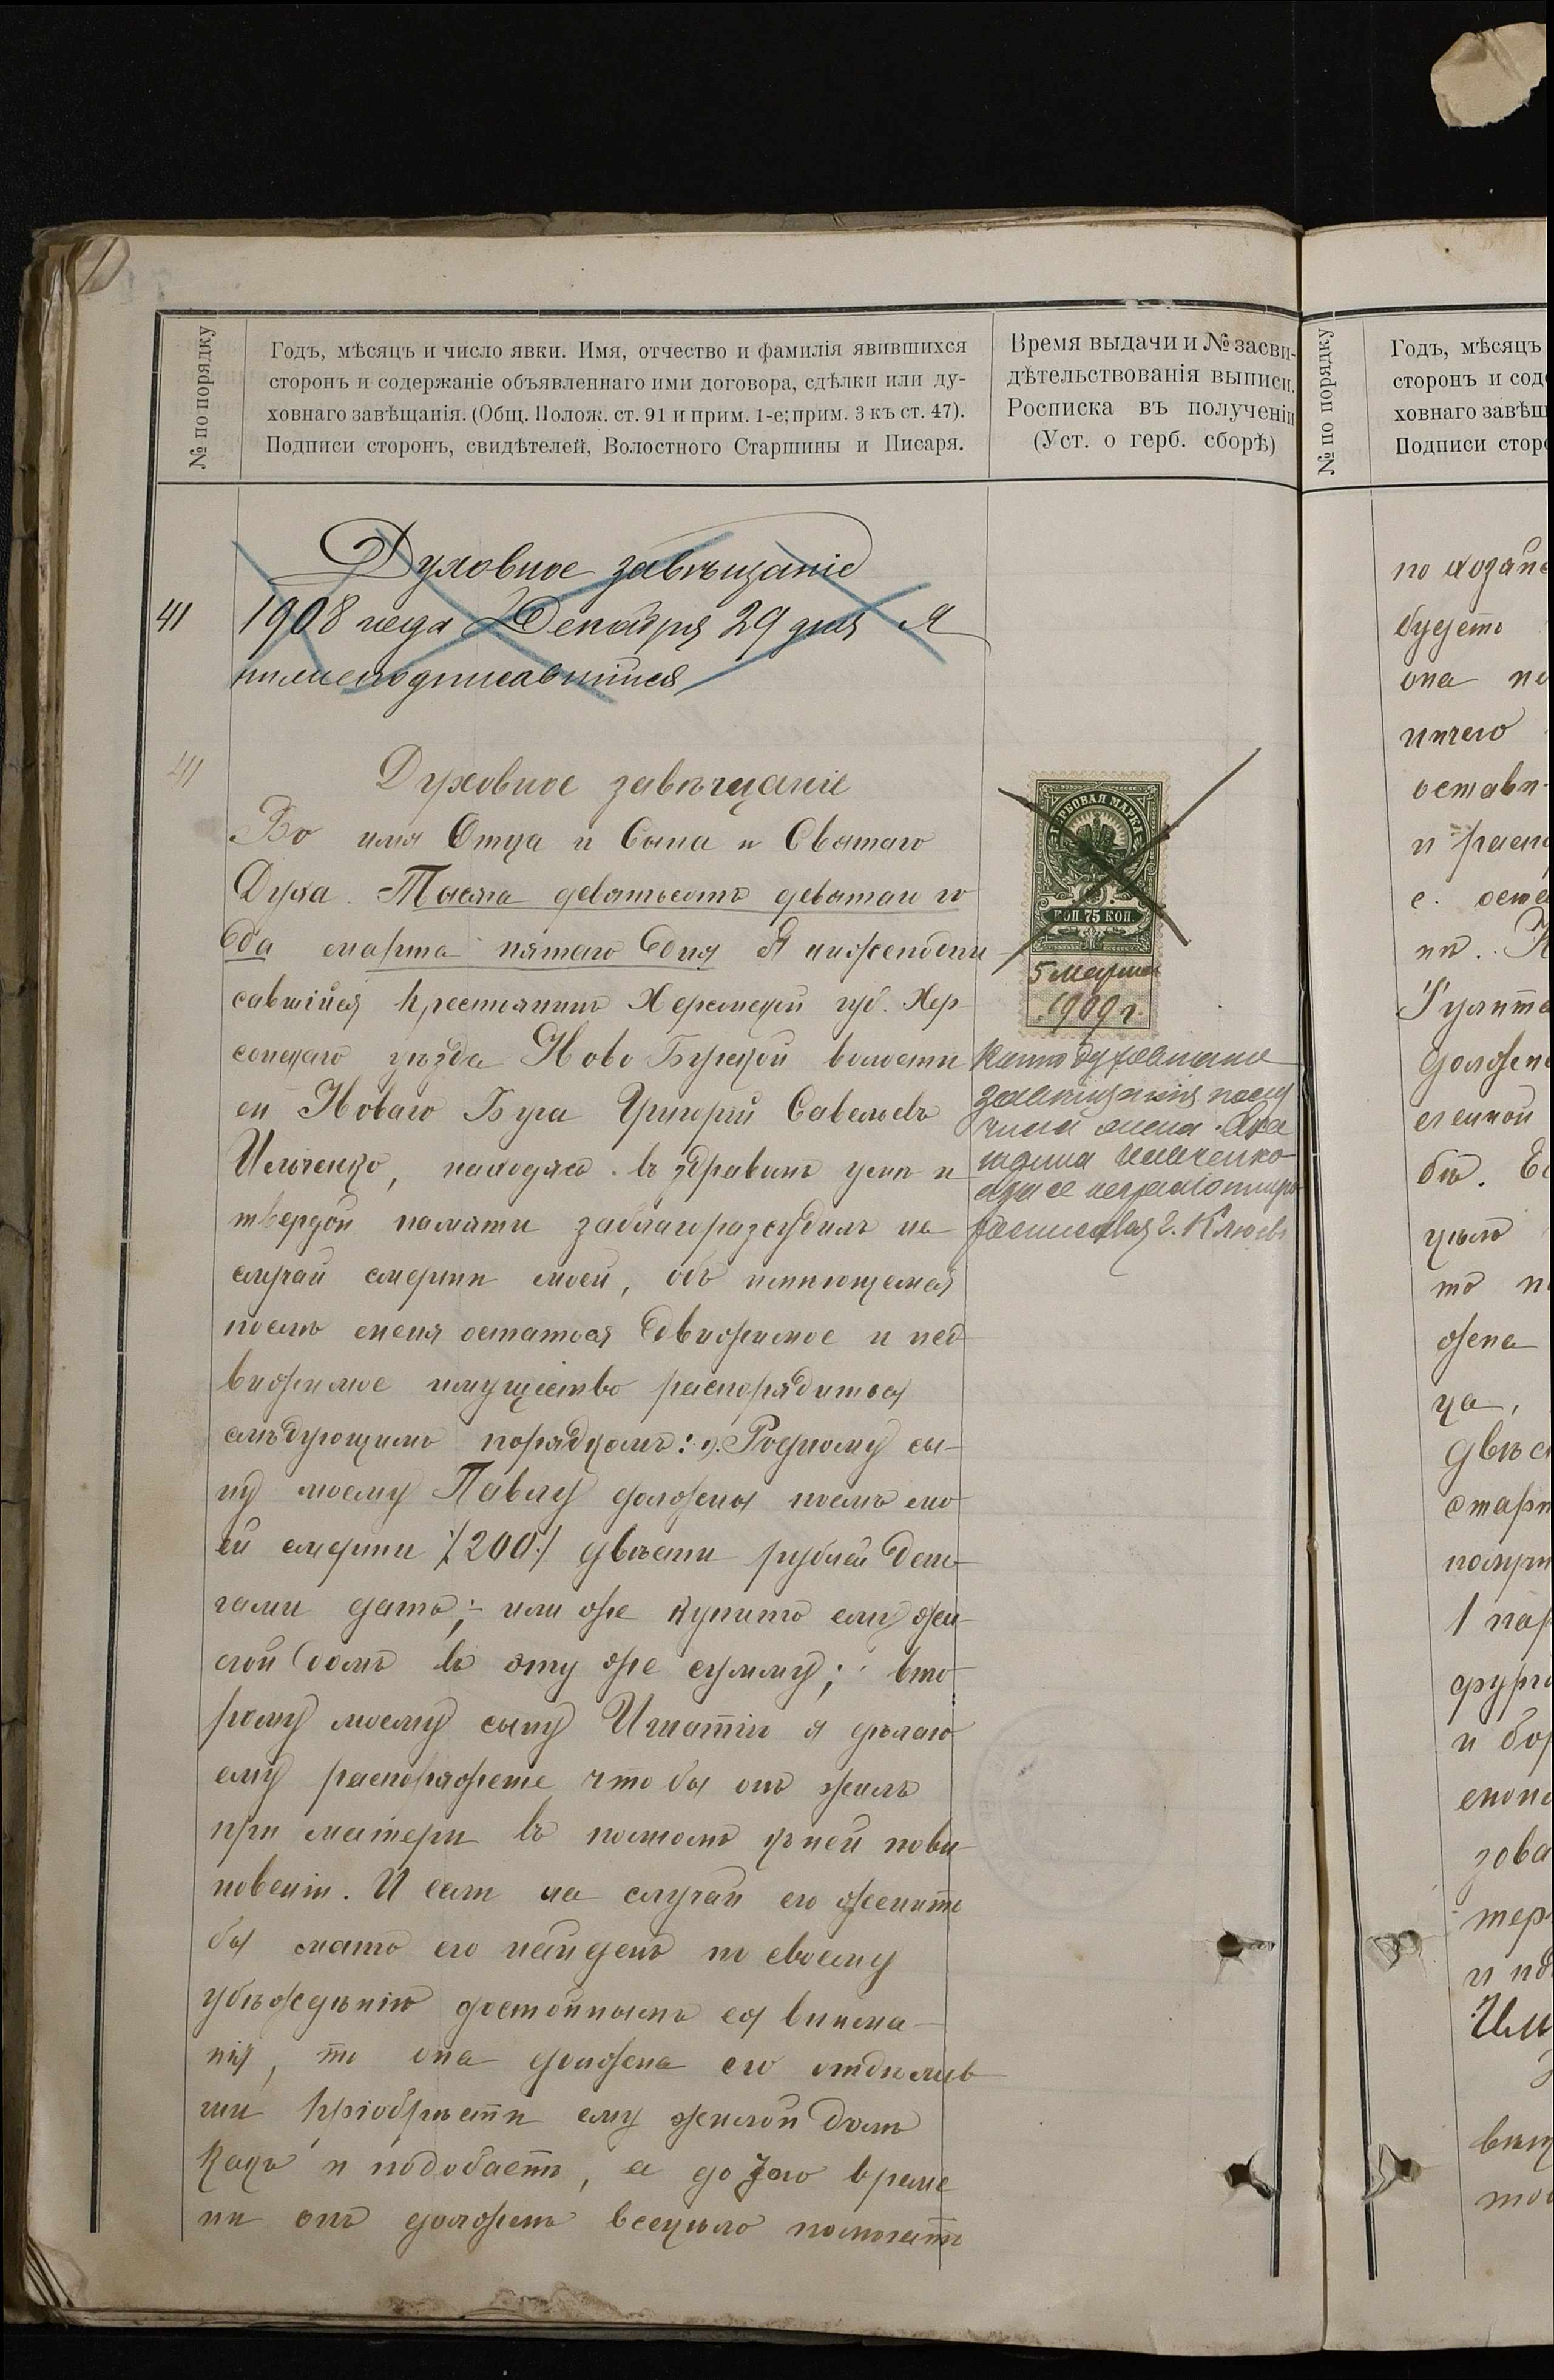 № по порядку
Годъ, мѣсяцъ и число явки. Имя, отчество и фамилія явившихся
сторонъ и содержаніе объявленнаго ими договора, сдѣлки или ду-
ховнаго завѣщанія. (Общ. Полож. ст. 91 и прим. 1-е; прим. 3 къ ст. 47).
Подписи сторонъ, свидѣтелей, Волостного Старшины и Писаря.
Время выдачи и № засви-
дѣтельствованія выписи.
Росписка въ полученіи
(Уст. о герб. сборѣ)
Духовное завѣщаніе
41
1908 года Декабря 29 дня Я
нижеподписавшійся
41
Духовное завѣщаніе
Во имя Отца и Сына и Святаго
Духа. Тысяча девятьсотъ девятаго го
да марта пятаго дня Я нижеподпи
савшійся крестьянинъ Херсонской губ. Хер-
сонскаго уѣзда Ново Бугской волости
с. Новаго Буга Григорій Савельевъ
Ильченко, находясь въ здравомъ умѣ и
твердой памяти заблагоразсудилъ на
случай смерти моей, объ имѣющемся
послѣ меня остаться движимое и нед
вижимое имущество распорядиться
слѣдующимъ порядкомъ: 1). Родному сы-
ну моему Павлу должны послѣ мо
ей смерти /200/ двѣсти рублей день
гами дать; - или же купить ему жи-
лой домъ въ эту же сумму; вто
рому моему сыну Игнатію я дѣлаю
ему распоряженіе что бы онъ жилъ
при матери въ полномъ къ ней пови
новеніи. И если на случай его женить
бы мать его найдетъ по своему
убѣжденію достойнымъ ея внима-
нія, то она должна его отдѣлив
ши пріобрѣсти ему жилой домъ
какъ и подобаетъ, а до того време
ни онъ долженъ всецѣло помогать
ГЕРБОВАЯ МАРКА
КОП. 75 КОП.
5 марта
1909 г.
Копію духовнаго
завѣщанія полу
чила жена
Ильченко
а за ее неграмотную
росписался Г. Клюевъ
№ по порядку
Годъ, мѣсяцъ
сторонъ и сод
ховнаго завѣщ
Подписи стор
по хозяй
будетъ
она
ничего
оставл
и расп
должен
бы. Ес
цѣло
то
жена
ца,
двѣс
старш
получ
1 пар
фург
и бор
зова
тер
и